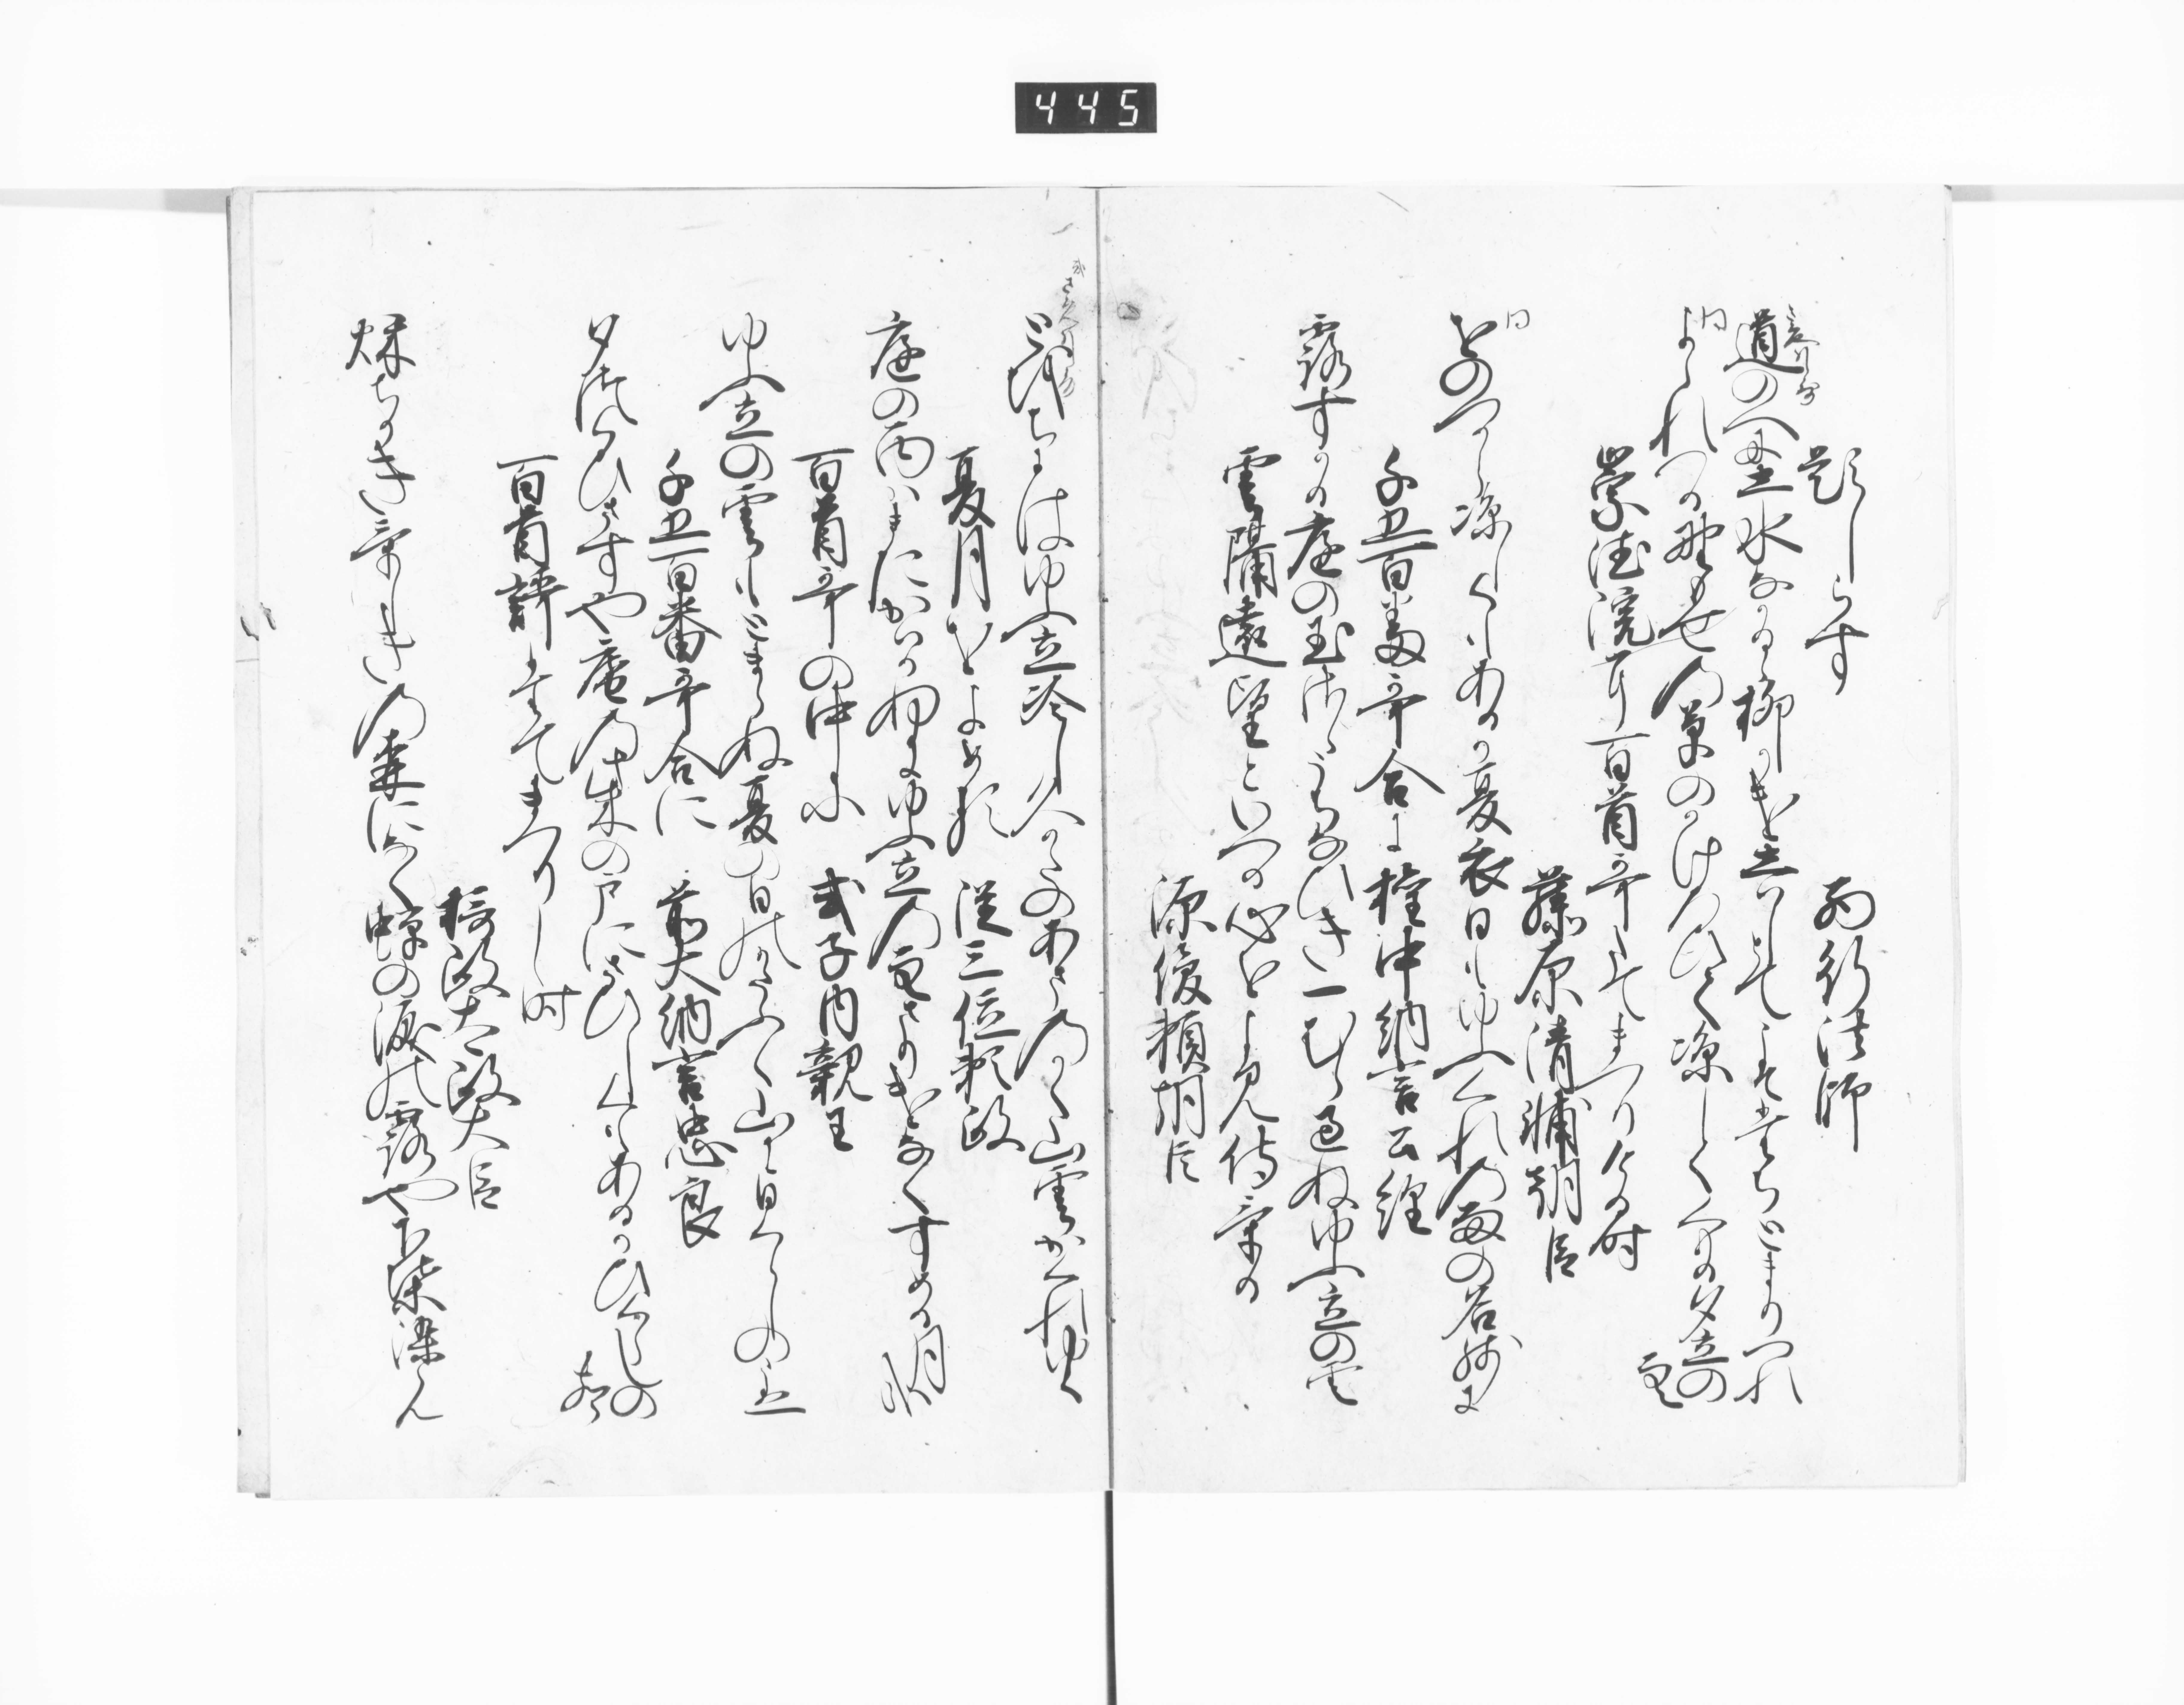 445
題しらす　西行法師
道のへに清水なかるゝ柳かけしはしとてこそたちとまりつれ
よられつる野もせの草のかけろひて涼しくくもる夕立の空
崇徳院に百首哥たてまつりける時
藤原清輔朝臣
をのつから涼しくもあるか夏衣日もゆふくれの雨の名残に
千五百番哥合に　権中納言公経
露すかる庭の玉さゝうちなひき一むら過ぬゆふ立の雲
雲隔遠望といへる心をよみ侍ける
源俊頼朝臣
とをちにはゆふ立すらし久かたのあまのかく山雲かくれゆく
夏月をよめる　従三位頼政
庭の面はまたかはかぬにゆふ立の空さりけなくすめる月哉
百首哥の中に　式子内親王
ゆふ立の雲もとまらぬ夏の日のかたふく山に日くらしの聲
千五百番哥合に　前大納言忠良
夕つくひさすや庵の柴の戸にさひしくもあるかひくらしの聲
百首哥たてまつりし時
摂政太政大臣
秋ちかきけしきの森になく蝉の涙の露や下葉染らん